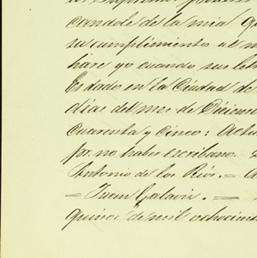 su cumplimiento al
hare yo cuando sus
Es dado en la Ciudad de
dias del mes de Diciem
Cuarenta y cinco: Actu
por no haber escribano.
Antonio de los Rios. — 
— Juan Galavis. —
quince de mil ochocien